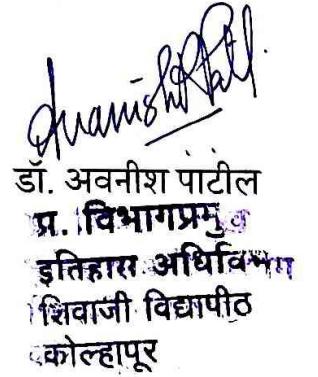 डॉ. अवनीश पाटील
प्र. विभागप्रमुख
इतिहास अधिविभाग
शिवाजी विद्यापीठ
कोल्हापूर